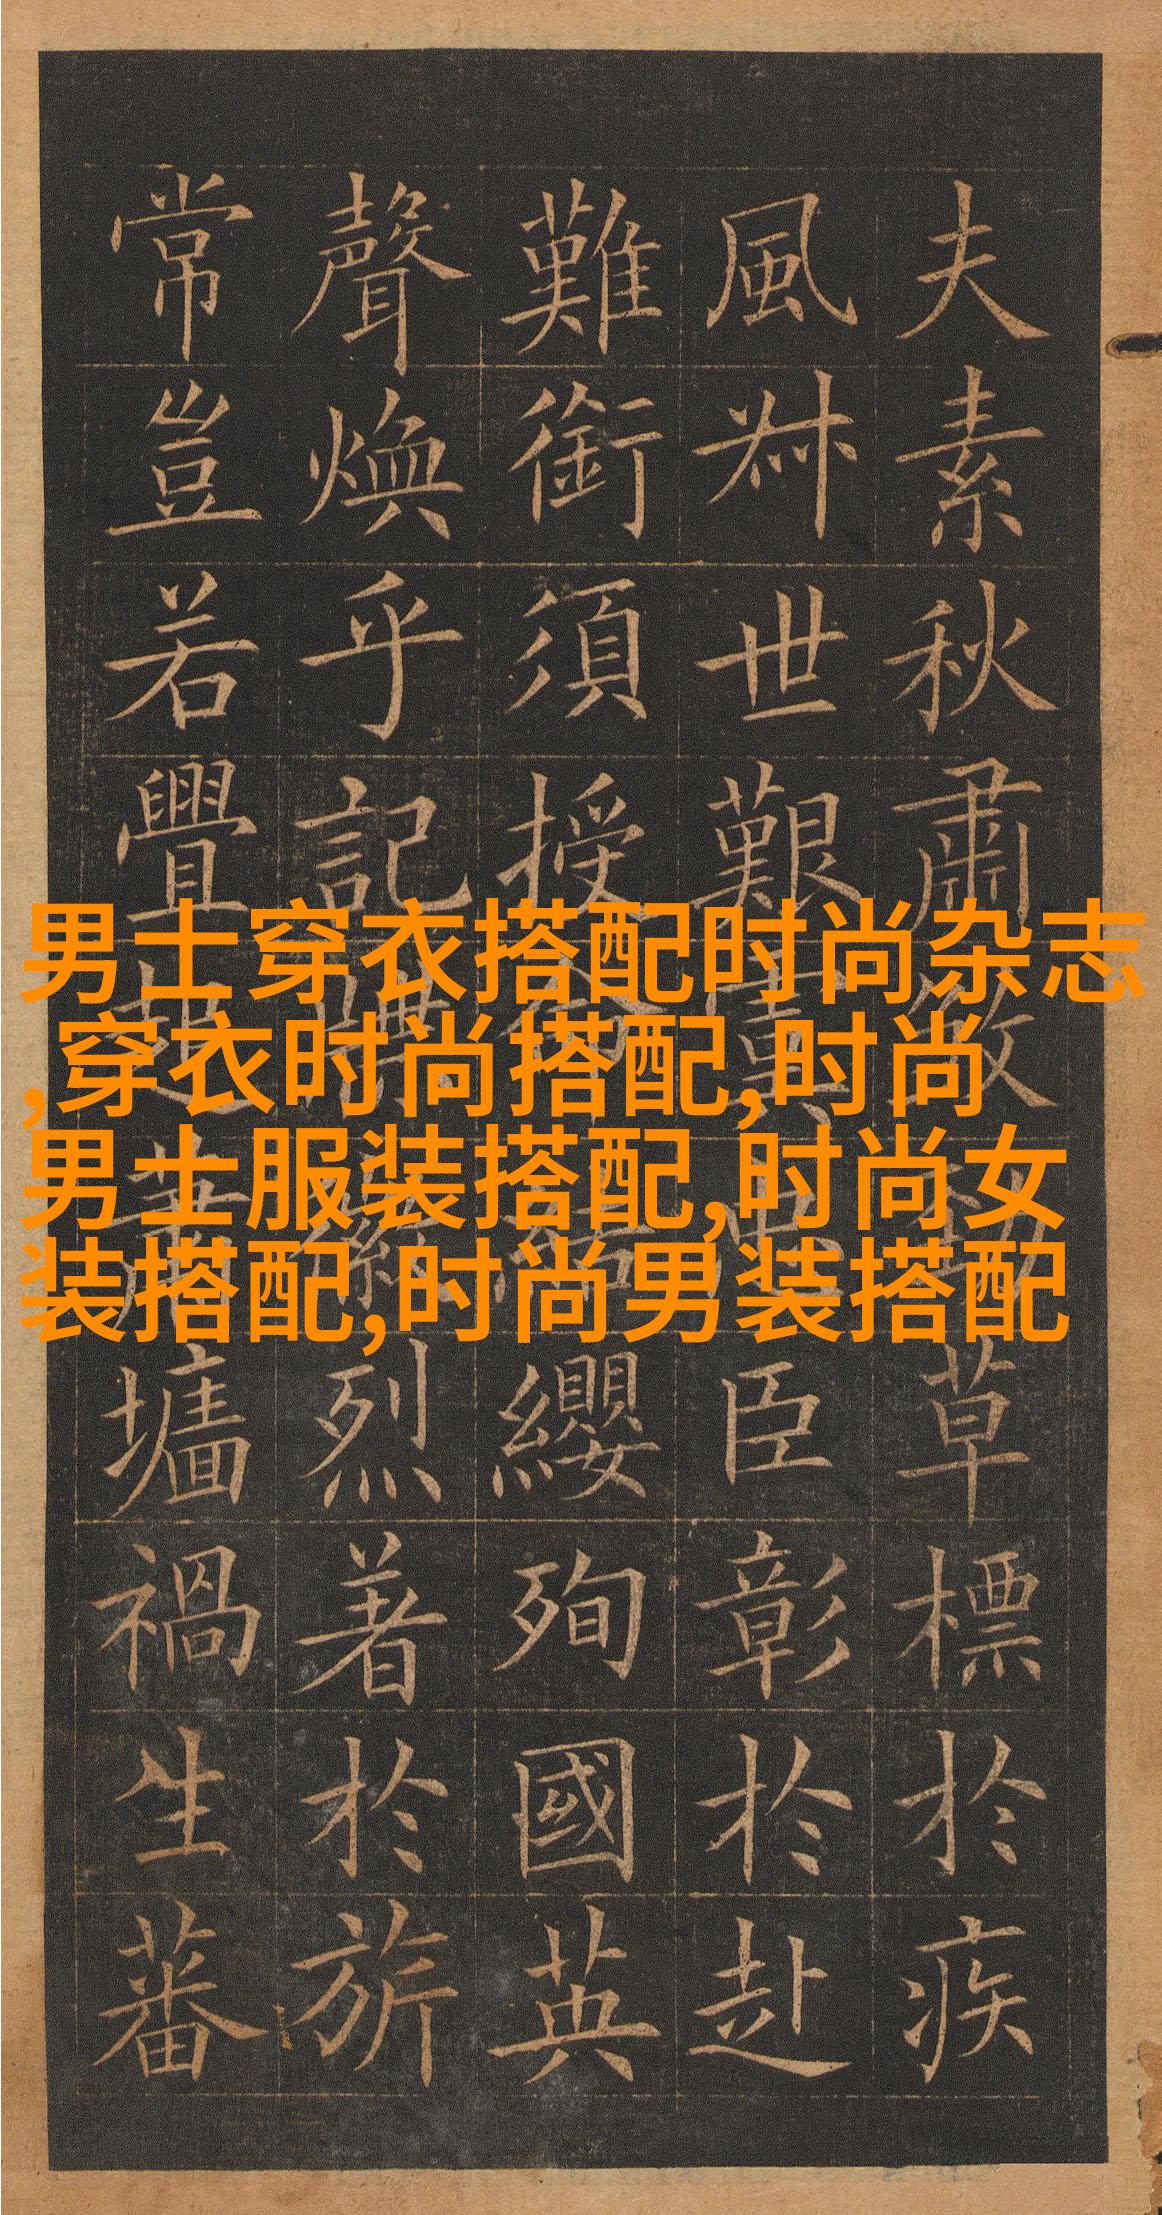 夫素秋肅煞勁草標於疾
風叔世艱虞忠臣彰於赴
難銜須授命結纓殉國英
聲煥乎記牒徽烈著於旂
常豈若釁起蕭墻禍生蕃
男士穿衣搭配时尚杂志
,穿衣时尚搭配,时尚
男士服装搭配,时尚女
装搭配,时尚男装搭配